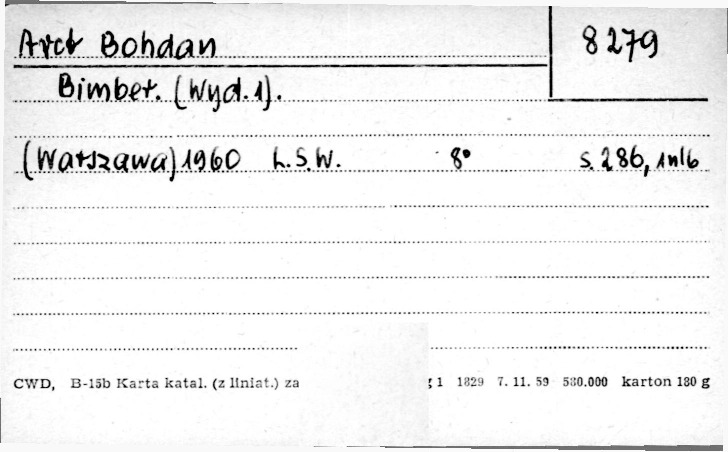 Arct Bohdan
8279
Bimber. (Wyd. 1).
(Warszawa) 1960 L.S.W. 8° s. 286, 1nlb
CWD, B-15b Karta katal. (z liniat.) za g 1 1829 7. 11. 59 580.000 karton 180 g